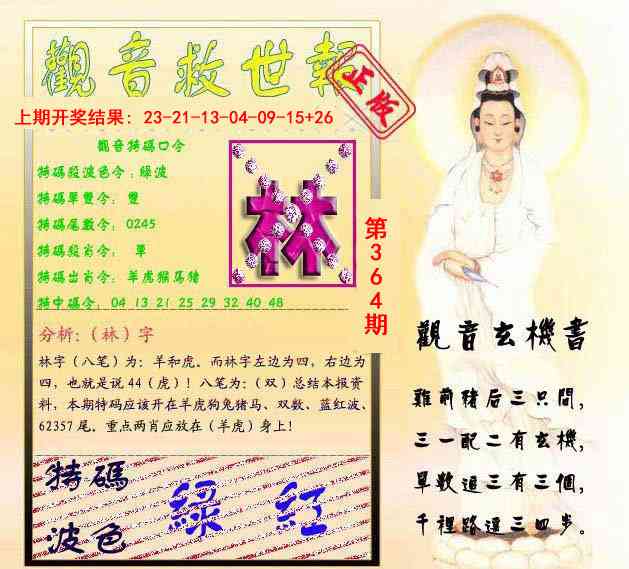 觀音救世報
正版
上期开奖结果：23-21-13-04-09-15+26
觀音特碼口令
特碼段波色令：綠波
特碼單雙令：雙
特碼尾數令：0245
特碼段肖令：單
特碼出肖令：羊虎猴馬豬
特中碼令：04 13 21 25 29 32 40 48
林
第364期
分析：（林）字
林字（八笔）为：羊和虎。而林字左边为四，右边为
四，也就是说44（虎）！八笔为：（双）总结本报资
料，本期特码应该开在羊虎狗兔猪马、双数、蓝红波、
62357尾。重点两肖应放在（羊虎）身上！
特碼
波色
綠 紅
觀音玄機書
雞前豬后三只間，
三一配二有玄機，
單數過三有三個，
千裡路遠三四步。